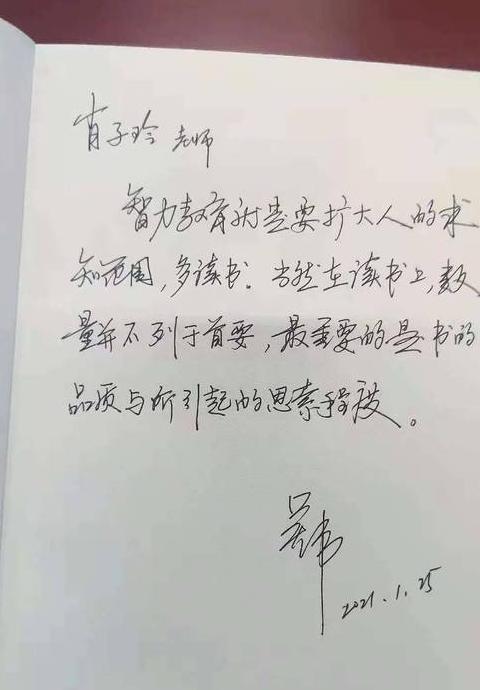 肖子玲 老师
智力教育就是要扩大人的求
知范围，多读书。当然在读书上，数
量并不列于首要，最重要的是书的
品质与所引起的思索程度。
2021.1.25